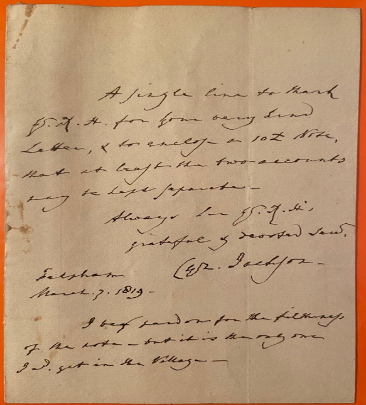 A single line to thank
Y. R. H. for your very kind
Letter, & to enclose a 10£ Note,
that at least the two accounts
may be kept separate –
Always Sir Y. R. H.
grateful & devoted Serv.
Jackson –
Felpham
March. 7. 1819 –
I beg pardon for the filthiness
of the note – but it is the only one
I cd. get in the Village –